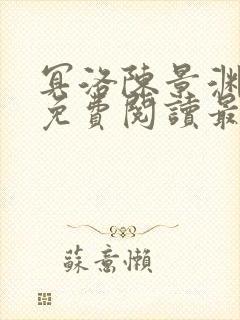 冥洛陳景渊
免費閱讀最
蘇意懶